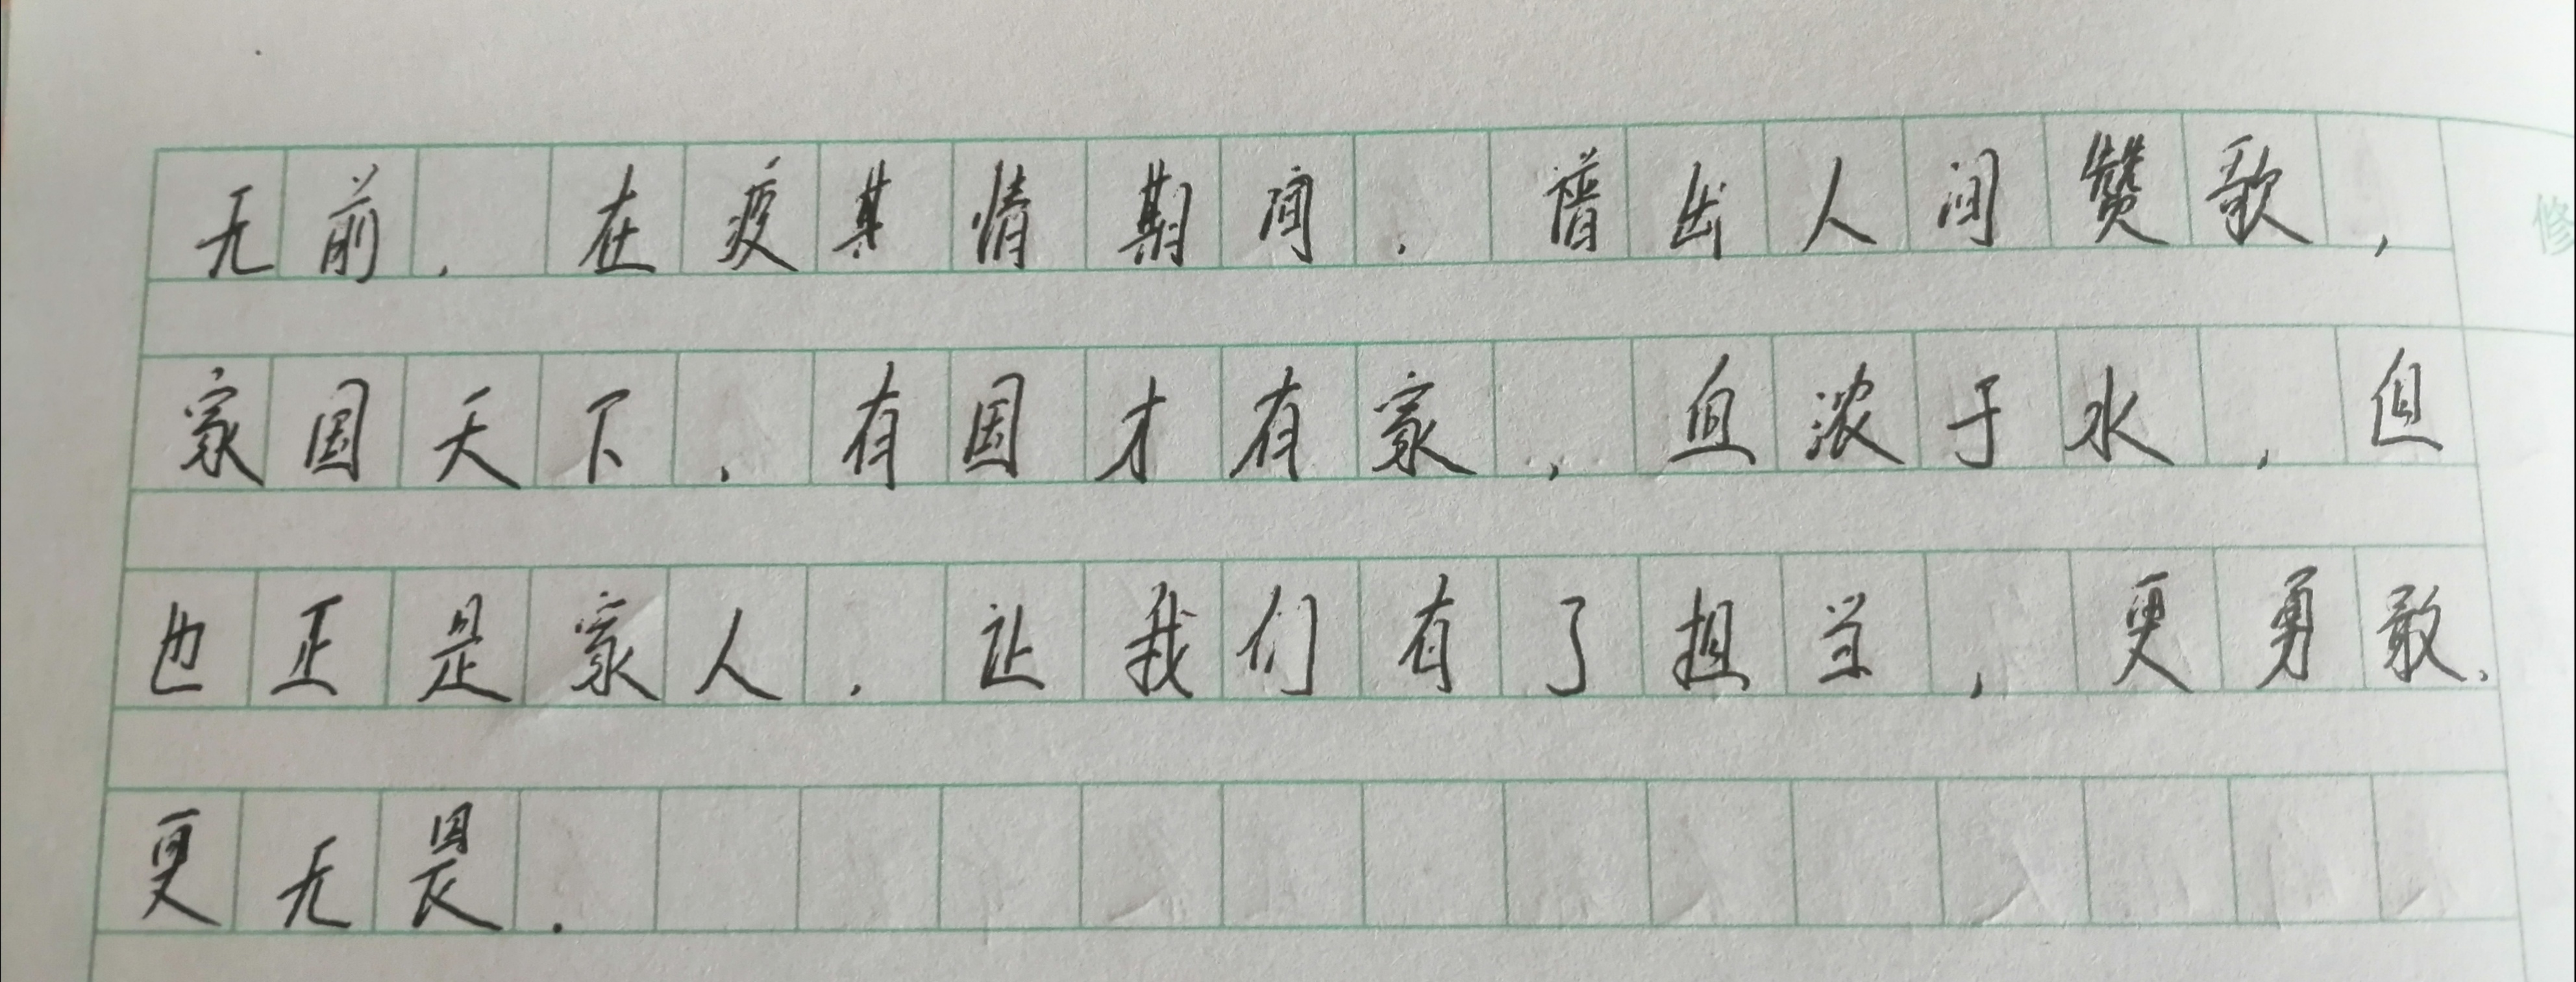 无前，在疫其情期间，谱出人间赞歌，
家国天下，有国才有家，血浓于水，但
也正是家人，让我们有了担当，更勇敢，
更无畏.
修